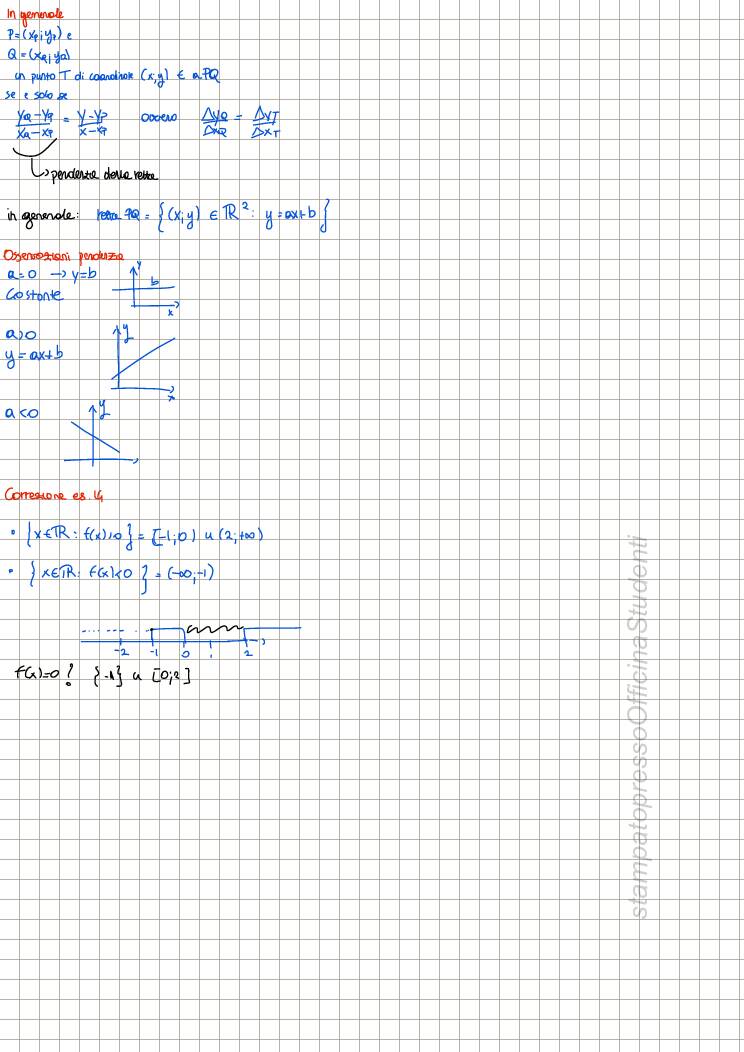 In generale
P=(xp; yp) e
Q=(xQ; yQ)
un punto T di coordinate (x;y) ∈ a PQ
se e solo se
yQ-yp/xQ-xp = y-yp/x-xp ovvero ΔyQ/ΔxQ = ΔyT/ΔxT
pendenza della retta
in generale: retta PQ = {(x;y) ∈ ℝ²: y=ax+b}
Osservazioni pendenza
a=0 → y=b
Costante
y
b
x
a>0
y=ax+b
y
x
a<0
y
Correzione es. 14
• {x∈ℝ: f(x)>0} = [-1;0) u (2;+∞)
• {x∈ℝ: f(x)<0} = (-∞;-1)
-2 -1 0 1 2
f(x)=0! {-1} u [0;2]
stampatopressoOfficinaStudenti